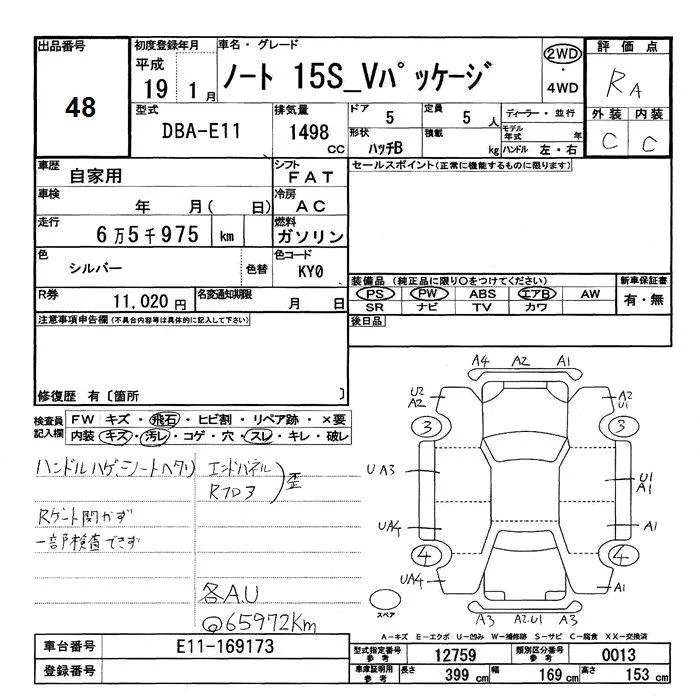 出品番号 初度登録年月 車名・グレード 評価点
48 平成 19 1月 ノート 15S_Vパッケージ 2WD・4WD RA
型式 排気量 ドア 定員 ディーラー・並行 外装 内装
DBA-E11 1498 CC 5 5人 モデル年式 年 C C
形状 積載 ハンドル 左・右
ハッチB kg
車歴 シフト セールスポイント(正常に機能するものに限ります)
自家用 FAT
車検 冷房
年 月( 日) AC
走行 燃料
6万5千975 km ガソリン
色 色替 色コード
シルバー KY0
装備品 (純正品に限り○をつけてください) 新車保証書
R券 名変通知期限 PS PW ABS エアB AW 有・無
11,020円 月 日 SR ナビ TV カワ
注意事項申告欄(不具合内容等は具体的に記入して下さい) 後日品
修復歴 有〔箇所 〕
検査員記入欄 FW キズ・飛石・ヒビ割・リペア跡・×要
内装 キズ・汚レ・コゲ・穴・スレ・キレ・破レ
ハンドルハゲ、シートヘタリ エンドパネル
Rフロア 歪
Rゲート開かず
一部検査できず
各A.U
@65972Km
A4 A2 A1
U2 A2 A2 U1
3 3
UA3 U1 A1
UA4 A1
4 4
UA4 A1
スペア A3 A2.U1 A3
A-キズ E-エクボ U-凹み W-補修跡 S-サビ C-腐食 XX-交換済
車台番号 E11-169173 型式指定番号 参考 12759 類別区分番号 参考 0013
登録番号 車庫証明用 参考 長さ 399 cm 幅 169 cm 高さ 153 cm